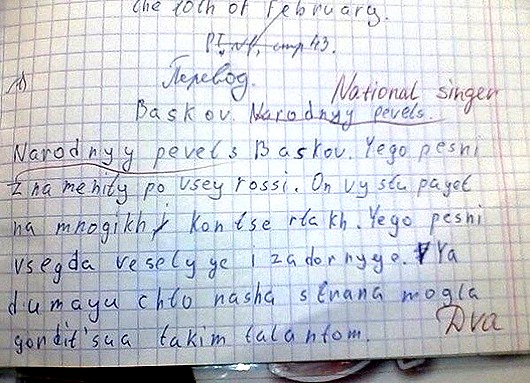 the 10th of February.
P1, N1, стр 43.
Перевод.
National singer
Baskov. Narodnyy pevets.
Narodnyy pevets Baskov. Yego pesni
znamenity po vsey rossi. On vystupayet
na mnogikh kontsertakh. Yego pesni
vsegda veselyye i zadornyye. Ya
dumayu chto nasha strana mogla
gordit'sua takim talantom.
Dva